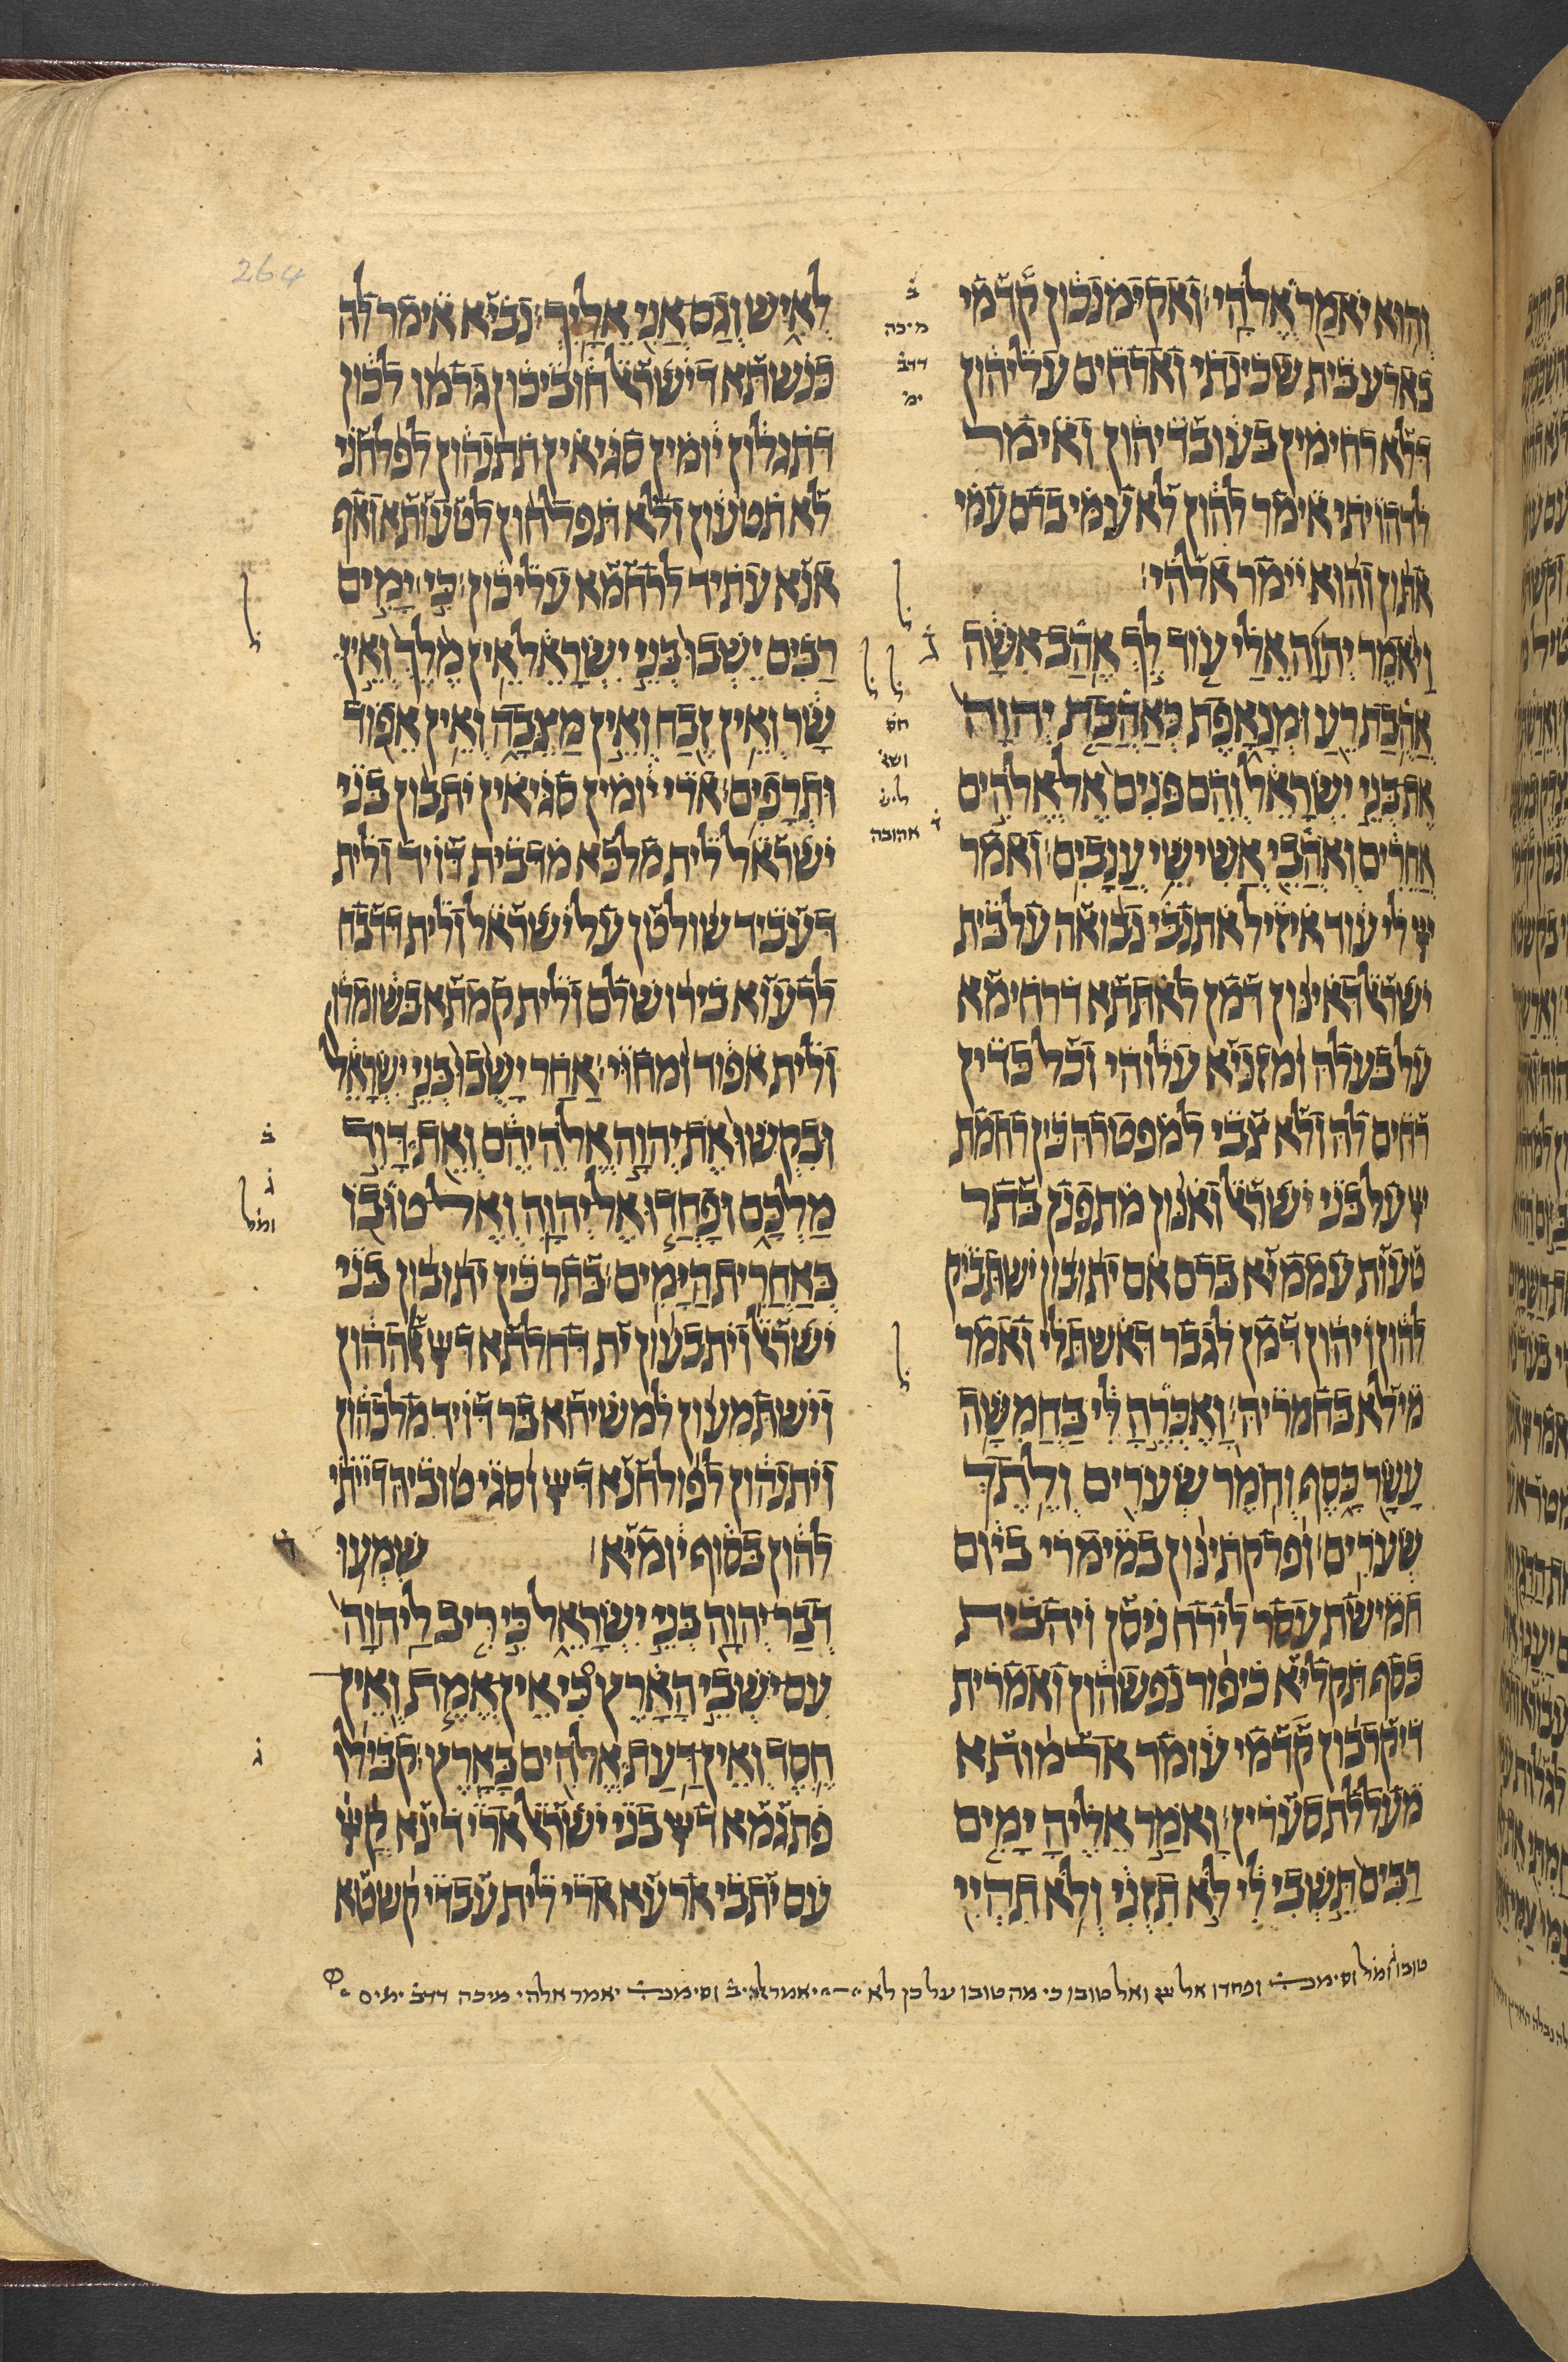 והוא יאמר אלהי׃ ואקיימנכון קדמי
בארע בית שכינתי וארחים עליהון
דלא רחימין בעובדיהון ואימר
לדהויתי אימר להון לא עמי ברם עמי
אתון והוא יימר אלהי׃
ויאמר יהוה אלי עוד לך אהב אשה
אהבת רע ומנאפת כאהבת יהוה
את בני ישראל והם פנים אל אלהים
אחרים ואהבי אשישי ענבים׃ ואמר
יי לי עוד איזיל אתנבי נבואה על בית
ישרא̇ל דאינון דמן לאתתא דרחימא
על בעלה ומזניא עלוהי וכל כדין
רחים לה ולא צבי למפטרה כין רחמת
יי על בני ישראל ואנון מתפנן בתר
טעות עממיא ברם אם יתובון ישתביק
להון ויהון דמן לגבר דאשתלי ואמר
מילא בחמריה׃ ואכרה לי בחמשה
עשר כסף וחמר שערים ולתך
שערים׃ ופרקתינון במימרי ביום
חמישת עסר לירח ניסן ויהבית
כסף תקליא כיפור נפשהון ואמרית
דיקרבון קדמי עומר ארמותא
מעללת סערין׃ ואמר אליה ימים
רבים תשבי לי לא תזני ולא תהיי
ב
מיכה
דדב
ימ
ל
ד
ל ל
חס
ושא
ליש
ד אהובה
ל
264
לאיש וגם אני אליך׃ נביא אימר לה
כנשתא דישראל חוביכון גרמו לכון
דתגלון יומין סגיאין תתנהון לפלחני
לא תטעון ולא תפלחון לטעותא ואף
אנא עתיד לרחמא עליכון׃ כי ימים
רבים ישבו בני ישראל אין מלך ואין
שר ואין זבח ואין מצבה ואין אפוד
ותרפים׃ ארי יומין סגיאין יתבון בני
ישראל לית מלכא מדבית דויד ולית
דעביד שולטן על ישראל ולית דדבח
לרעוא בירושלם ולית קמתא בשומרון
ולית אפוד ומחוי׃ אחר ישבו בני ישראל
ובקשו את יהוה אלהיהם ואת דוד
מלכם ופחדו אל יהוה ואל טובו
באחרית הימים׃ בתר כין יתובון בני
ישראל ויתבעון ית דחלתא דיי אלההון
וישתמעון למשיחא בר דויד מלכהון
ויתנהון לפולחנא דיי וסגי טוביה דייתי
להון בסוף יומיא׃ שמעו
דבר יהוה בני ישראל כי ריב ליהוה
עם ישבי הארץ כי אין אמת ואין
חסד ואין דעת אלהים בארץ׃ קבילו
פתגמא דיי בני ישראל ארי דינא קדם יי
עם יתבי ארעא ארי לית עבדי קשטא
ל
ב
ג
ומל
ג
טובו ג ומל וסימנ ופחדו אל יי ואל טובו כי מה טובו על כן לא יאמר אלהי ב וסימנ יאמר אלהי מיכה דדב ימים